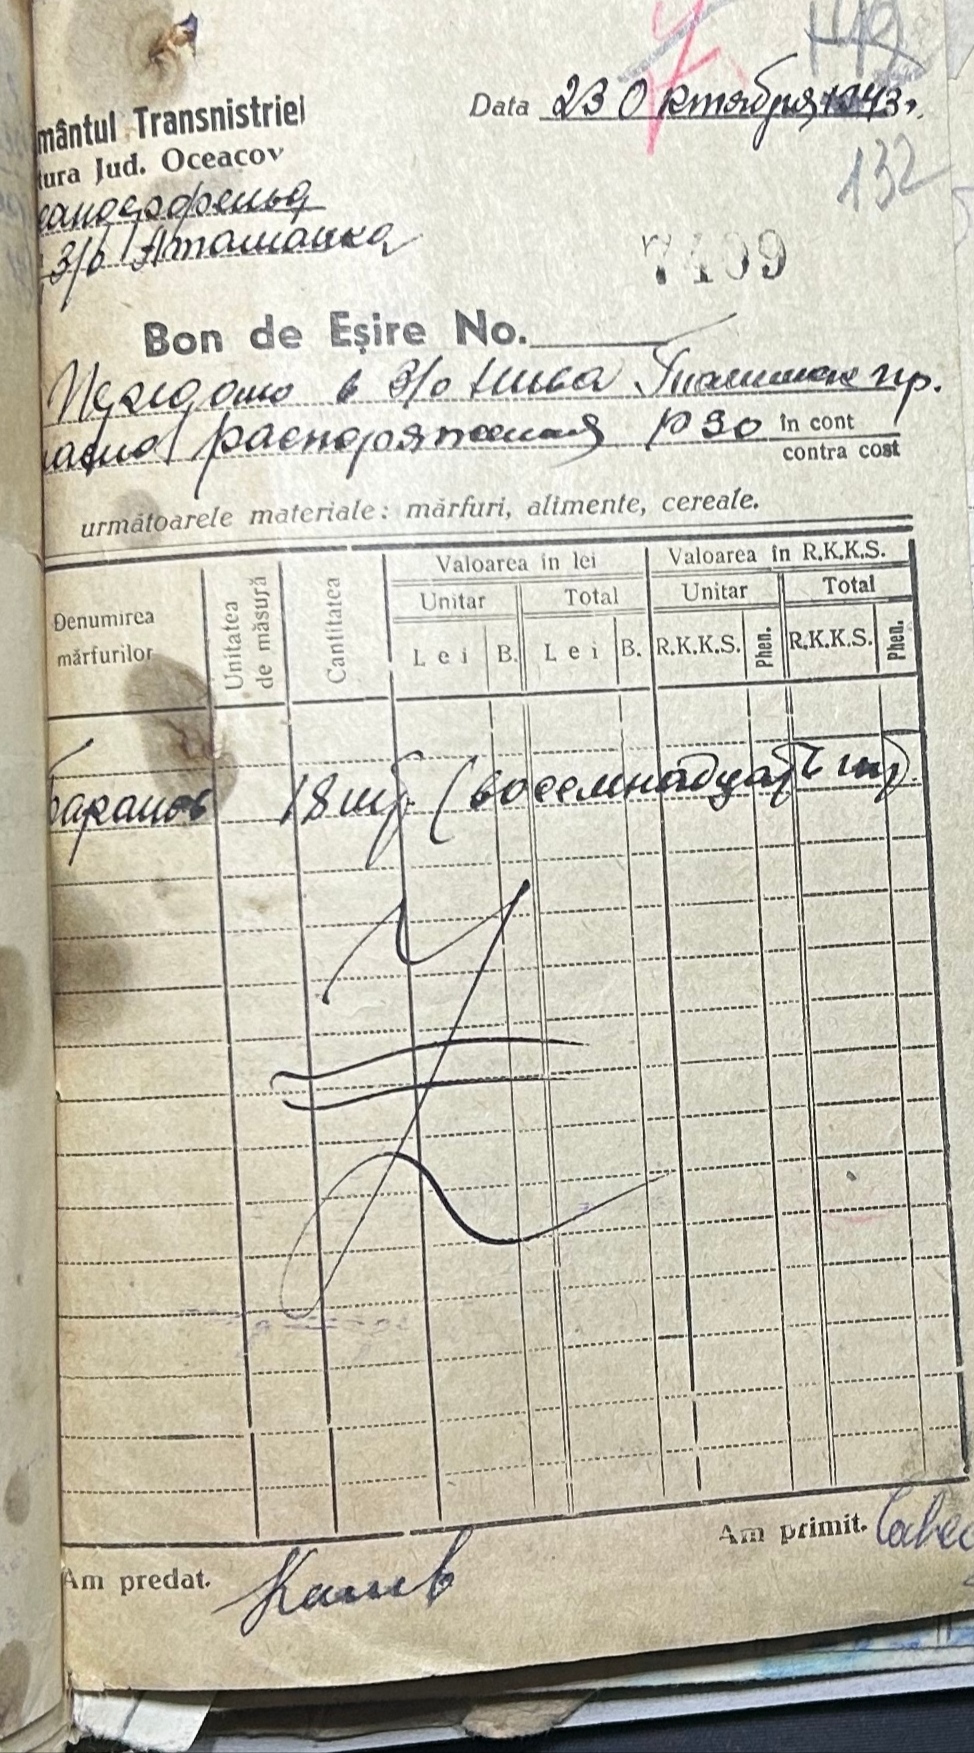 149
Data 23 Октября 1943 г.
mântul Transnistriei
tura Jud. Oceacov
132
сандерфельд
з/о Аташанка
7499
Bon de Eşire No.
Передано в з/о пр.
распоряжения РЗО în cont
contra cost
următoarele materiale: mărfuri, alimente, cereale.
Denumirea mărfurilor
Unitatea de măsură
Cantitatea
Valoarea în lei
Valoarea în R.K.K.S.
Unitar
Total
Unitar
Total
Lei
B.
Lei
B.
R.K.K.S.
Phen.
R.K.K.S.
Phen.
баранов 18 шт. (восемнадцать шт).
Am primit.
Am predat.